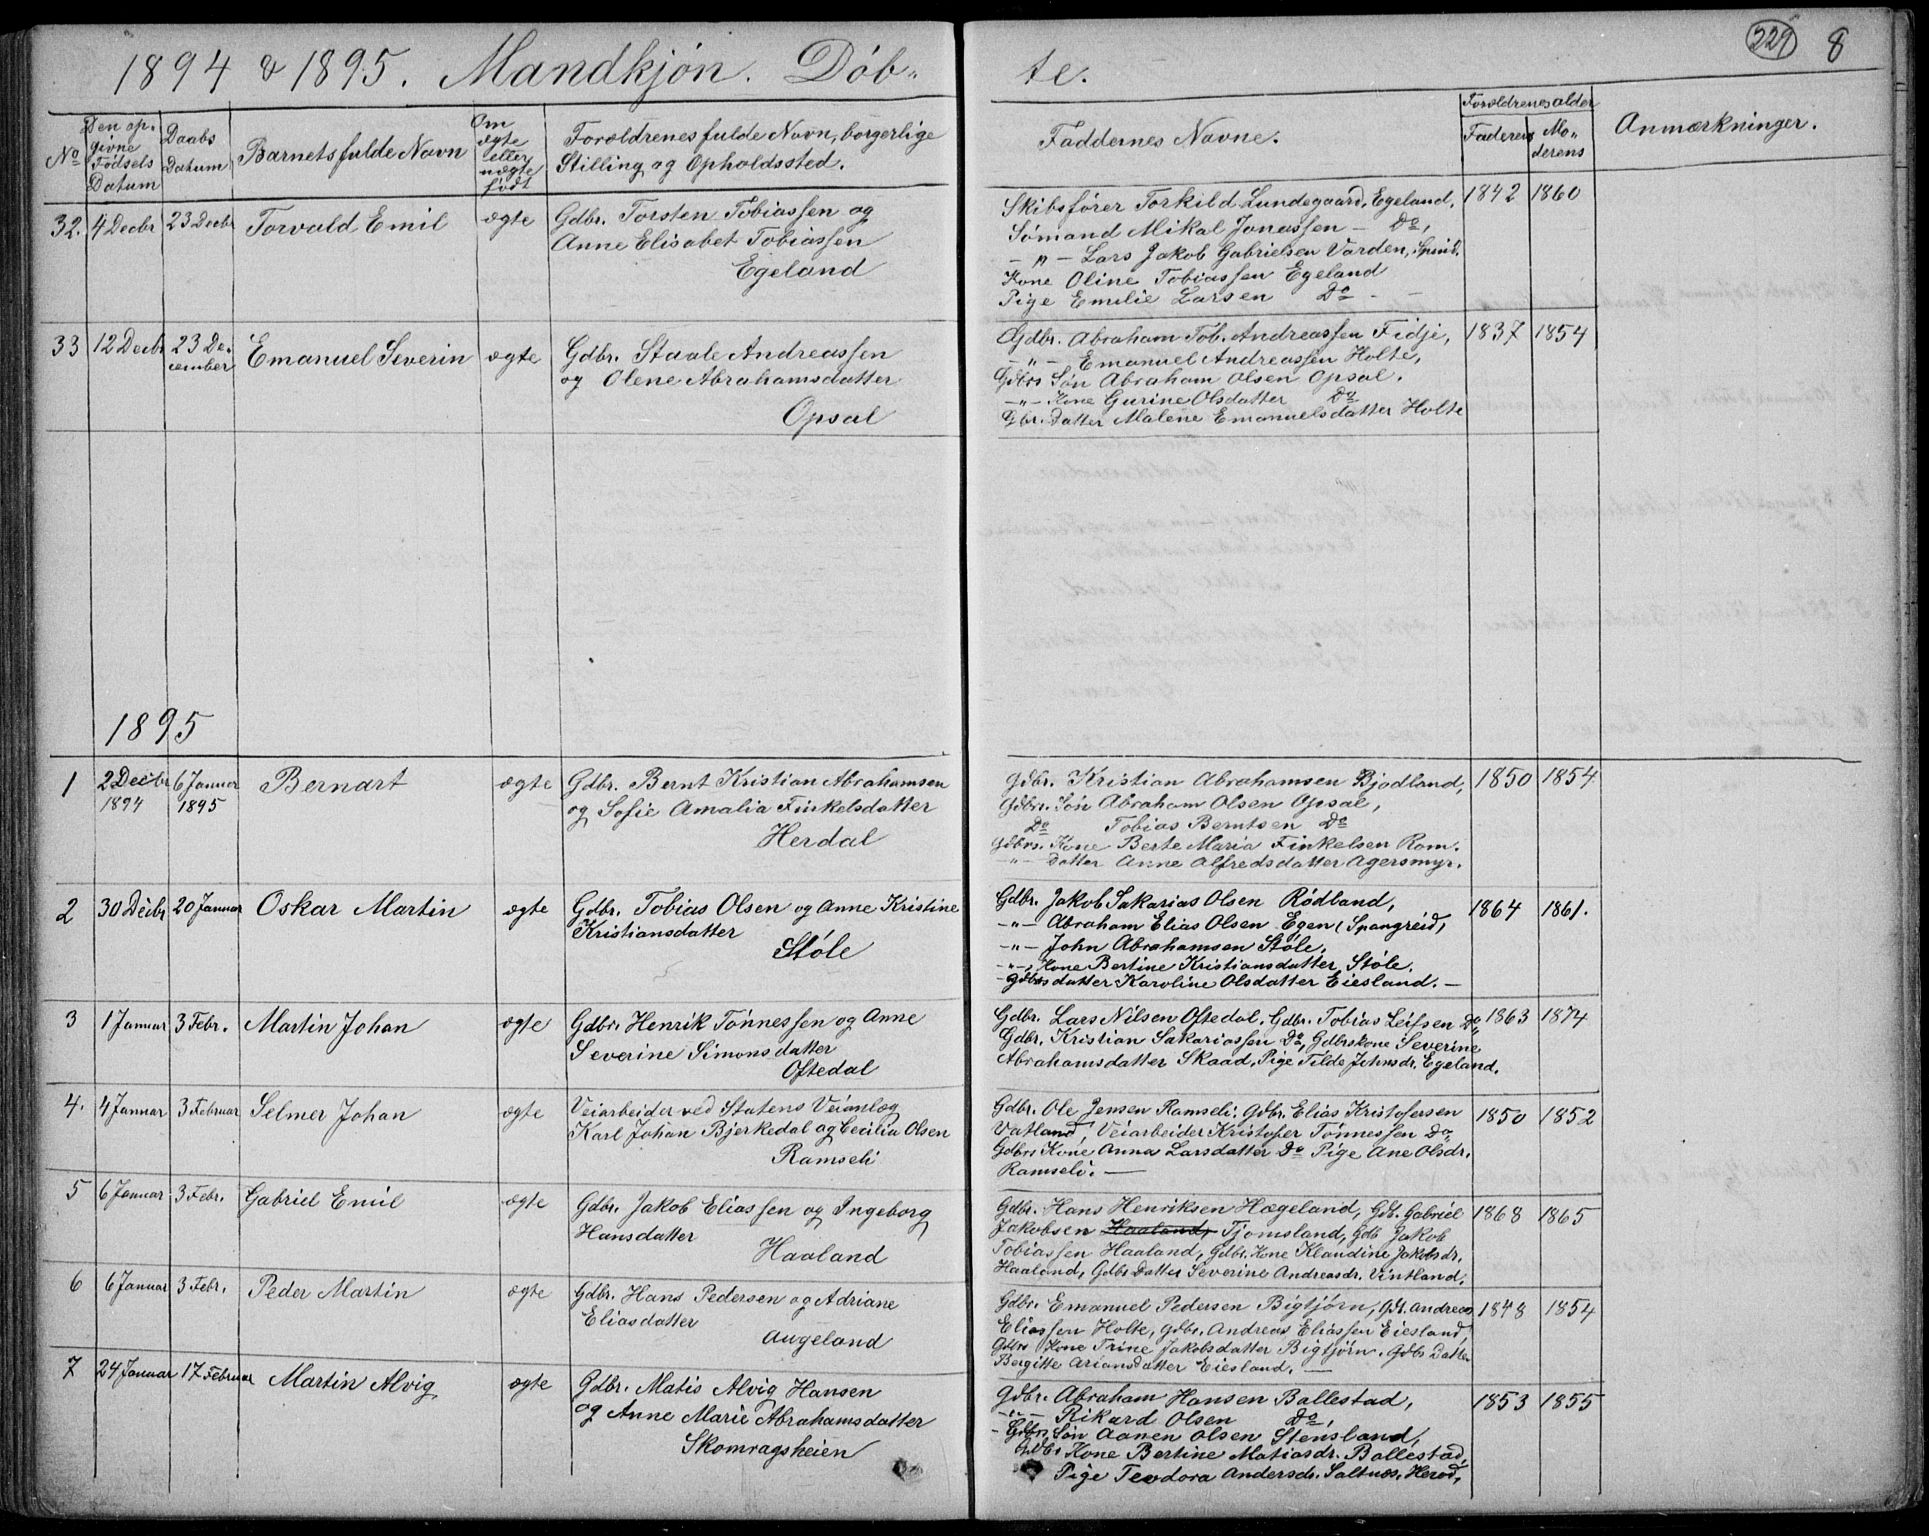 1894 & 1895. Mandkjön. Döb„ te.
229 8
No
Den op-
givne
Fødsels
Datum
Daabs
Datum
Barnets fulde Navn
Om
ægte
eller
uægte
født
Forældrenes fulde Navn, borgerlige
Stilling og Opholdssted.
Faddernes Navne.
Forældrenes alder
Faderens
Mo„
derens
Anmærkninger.
32. 4 Decbr 23 Decbr Torvald Emil ægte
Gdbr. Torsten Tobiassen og
Anne Elisabet Tobiassen
Egeland
Skibsfører Torkild Lundegaard, Egeland,
Sömand Mikal Jonassen – Do,
– „ – Lars Jakob Gabrielsen Varden, Spind.
Kone Oline Tobiassen Egeland
Pige Emilie Larsen Do – –
1842 1860
33 12 Decbr 23 De-
cember
Emanuel Severin ægte
Gdbr. Staale Andreassen
og Olene Abrahamsdatter
Opsal
Gdbr. Abraham Tob. Andreassen Fidje,
– „ – Emanuel Andreassen Holte,
Gdbrs Søn Abraham Olsen Opsal.
– „ – Kone Gurine Olsdatter Do
Gbr. Datter Malene Emanuelsdatter Holte
1837 1854
1895
1 2 Decbr 6 Januar
1894 1895
Bernart ægte
Gdbr. Bernt Kristian Abrahamsen
og Sofie Amalia Finkelsdatter
Herdal
Gdbr. Kristian Abrahamsen Bjodland,
Gdbrs. Søn Abraham Olsen Opsal,
Do Tobias Berntsen Do
Gdbrs. Kone Berte Maria Finkelsen Rom.
– „ – Datter Anne Alfredsdatter Agersmyr.
1850 1854
2 30 Decbr 20 Januar Oskar Martin ægte
Gdbr. Tobias Olsen og Anne Kristine
Kristiansdatter
Stöle
Gdbr. Jakob Sakarias Olsen Rödland,
– „ – Abraham Elias Olsen Egen (Spangreid,
– „ – John Abrahamsen Stöle,
– „ – Kone Bertine Kristiansdatter Stöle.
– Gdbrs datter Karoline Olsdatter Eiesland. –
1864 1861.
3 1 Januar 3 Febr. Martin Johan ægte
Gdbr. Henrik Tönnessen og Anne
Severine Simonsdatter
Oftedal
Gdbr. Lars Nilsen Oftedal, Gdbr. Tobias Leifsen Do
Gdbr. Kristian Sakariassen Do, Gdbrskone Severine
Abrahamsdatter Skaad, Pige Tilde Johnsdr. Egeland.
1863 1874
4. 4 Januar 3 Februar Selmer Johan ægte
Veiarbeider ved Statens Veianlæg
Karl Johan Bjerkedal og Cecilia Olsen
Ramseli
Gdbr. Ole Jensen Ramseli, Gdbr. Elias Kristofersen
Vatland, Veiarbeider Kristofer Tönnessen Do,
Gdbrs Kone Anna Larsdatter Do Pige Ane Olsdr.
Ramseli. –
1850 1852
5 6 Januar 3 Febr. Gabriel Emil ægte
Gdbr. Jakob Eliassen og Ingeborg
Hansdatter
Haaland
Gdbr. Hans Henriksen Hægeland, Gdb. Gabriel
Jakobsen Haaland, Tjomsland, Gdb Jakob
Tobiassen Haaland, Gdbr. Kone Klaudine Jakobsdr.
Haaland, Gdbs Datter Severine Andreasdr. Vintland.
1868 1865
6 6 Januar 3 Febr. Peder Martin ægte
Gdbr. Hans Pedersen og Adriane
Eliasdatter
Augeland
Gdbr. Emanuel Pedersen Bigtjörn, Gdb. Andreas
Eliassen Holte, Gdbr. Andreas Eliassen Eiesland,
Gdbrs Kone Trine Jakobsdatter Bigtjörn. Gdbs Datter
Bergitte Ariansdatter Eiesland. –
1848 1854
7 24 Januar 17 Februar Martin Alvig ægte
Gdbr. Matis Alvig Hansen
og Anne Marie Abrahamsdatter
Skomragsheien
Gdbr. Abraham Hansen Ballestad,
– „ – Rikard Olsen Do,
– Gdbrs Søn Aanen Olsen Stensland,
Gdbs Kone Bertine Matiasdr. Ballestad,
Pige Teodora Andersdr. Saltnes, Herad,
1853 1855